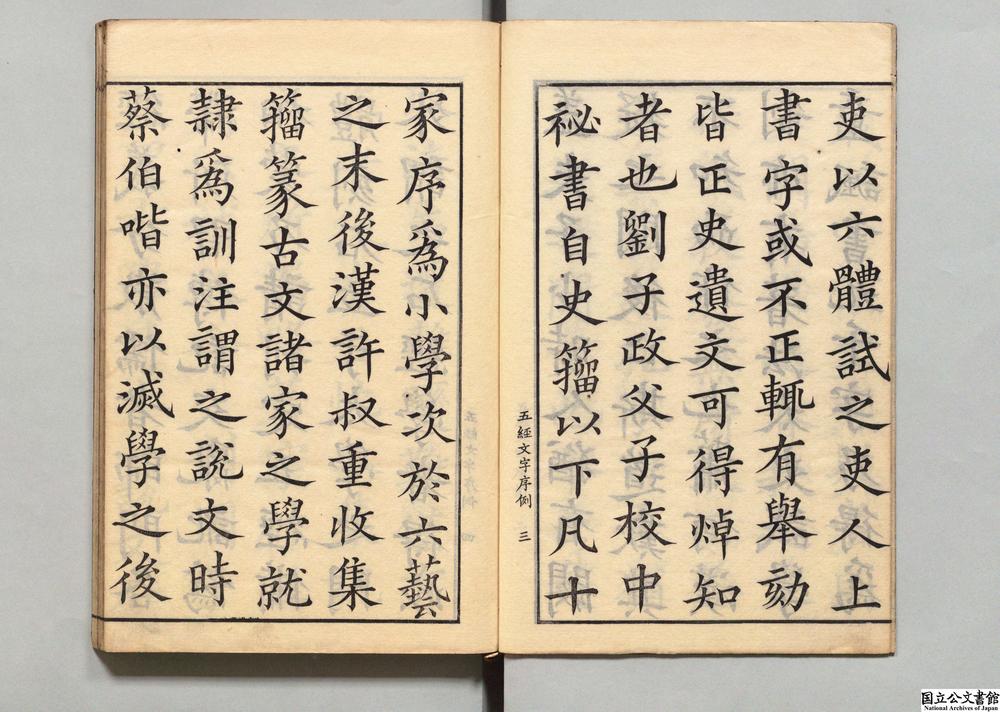 吏以六體試之吏人上
書字或不正輒有舉劾
皆正史遺文可得焯知
者也劉子政父子校中
祕書自史籀以下凡十
五經文字序例 三
家序爲小學次於六藝
之末後漢許叔重收集
籀篆古文諸家之學就
隸爲訓注謂之說文時
蔡伯喈亦以滅學之後
国立公文書館
National Archives of Japan